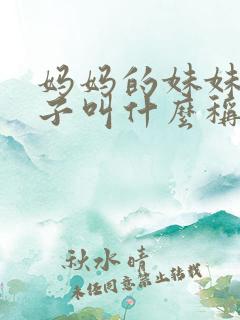 妈妈的妹妹
子叫什麼稱
秋水晴
未经同意禁止转载